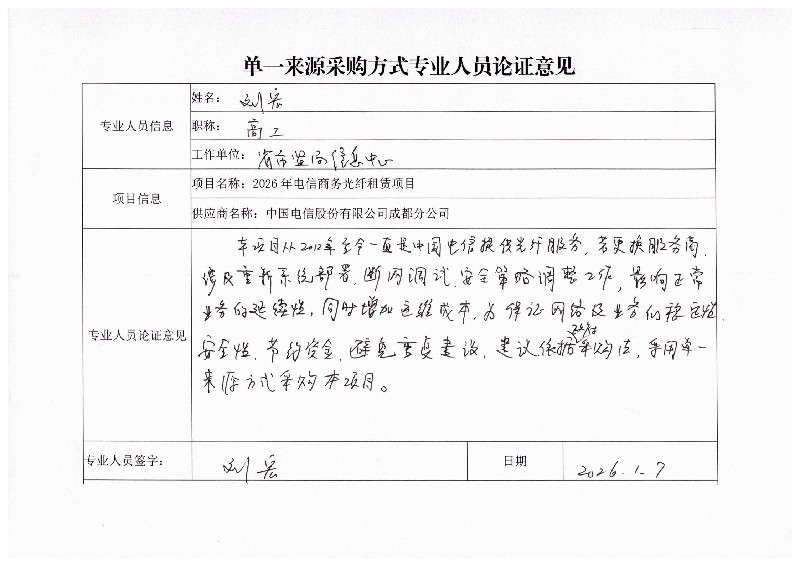 单一来源采购方式专业人员论证意见
专业人员信息
姓名：刘宏
职称：高工
工作单位：省市监局信息中心
项目信息
项目名称：2026年电信商务光纤租赁项目
供应商名称：中国电信股份有限公司成都分公司
专业人员论证意见
本项目从2012年至今一直是中国电信提供光纤服务，若更换服务商，
涉及重新系统部署、断网调试、安全策略调整工作，影响正常
业务的延续性，同时增加运维成本，为保证网络及业务的稳定性、
安全性、节约资金、避免重复建设，建议依据政府采购法，采用单一
来源方式采购本项目。
专业人员签字：刘宏
日期 2026.1.7